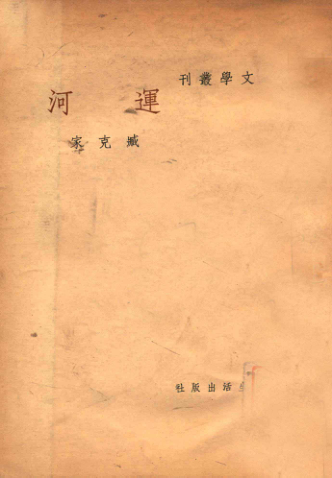 文學叢刊
運河
臧克家
活出版社